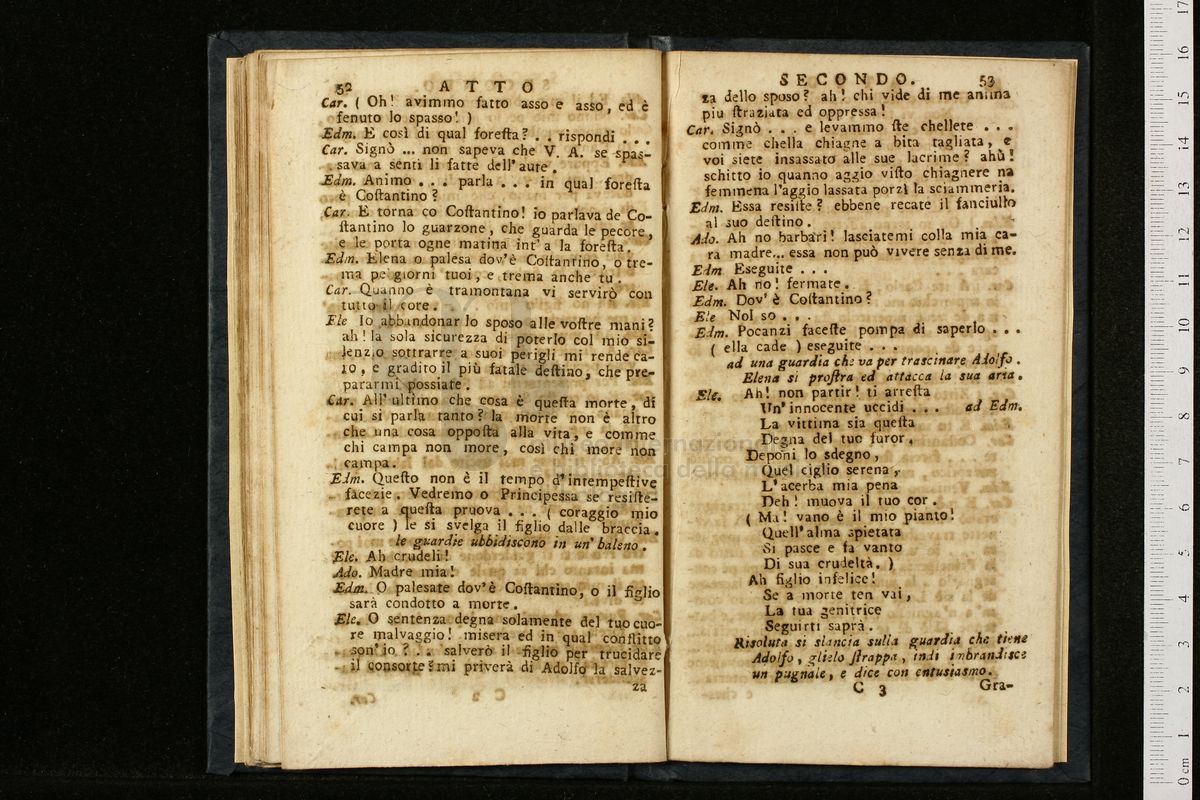 52 ATTO
Car. ( Oh! avimmo fatto asso e asso, ed è
fenuto lo spasso! )
Edm. E così di qual foreſta? . . rispondi . . .
Car. Signò ... non sapeva che V. A. se spas-
sava a senti li fatte dell' aute .
Edm. Animo . . . parla . . . in qual foreſta
è Coſtantino ?
Car. E torna co Coſtantino! io parlava de Co-
ſtantino lo guarzone, che guarda le pecore,
e le porta ogne matina int' a la foreſta.
Edm. Elena o palesa dov'è Coſtantino, o tre-
ma pe' giorni tuoi, e trema anche tu .
Car. Quanno è tramontana vi servirò con
tutto il core.
Ele Io abbandonar lo sposo alle voſtre mani?
ah! la sola sicurezza di poterlo col mio si-
lenzio sottrarre a suoi perigli mi rende ca-
ro, e gradito il più fatale deſtino, che pre-
pararmi possiate .
Car. All' ultimo che cosa è queſta morte, di
cui si parla tanto? la morte non è altro
che una cosa oppoſta alla vita, e comme
chi campa non more, così chi more non
campa.
Edm. Queſto non è il tempo d'intempeſtive
facezie. Vedremo o Principessa se resiſte-
rete a queſta pruova . . . ( coraggio mio
cuore ) le si svelga il figlio dalle braccia.
le guardie ubbidiscono in un' baleno.
Ele. Ah crudeli!
Ado. Madre mia!
Edm. O palesate dov'è Coſtantino, o il figlio
sarà condotto a morte.
Ele. O sentenza degna solamente del tuo cuo-
re malvaggio! misera ed in qual conflitto
son' io ? . . salverò il figlio per trucidare
il consorte? mi priverà di Adolfo la salvez-
za
SECONDO. 53
za dello sposo? ah! chi vide di me anima
piu ſtraziata ed oppressa!
Car. Signò . . . e levammo ſte chellete . . .
comme chella chiagne a bita tagliata, e
voi siete insassato alle sue lacrime? ahù!
schitto io quanno aggio viſto chiagnere na
femmena l'aggio lassata porzì la sciammeria.
Edm. Essa resiſte? ebbene recate il fanciullo
al suo deſtino.
Ado. Ah no barbari! lasciatemi colla mia ca-
ra madre... essa non può vivere senza di me.
Edm Eseguite . . .
Ele. Ah no! fermate.
Edm. Dov' è Coſtantino?
Ele Nol so . . .
Edm. Pocanzi faceſte pompa di saperlo . . .
( ella cade ) eseguite . . .
ad una guardia che va per trascinare Adolfo.
Elena si proſtra ed attacca la sua aria.
Ele. Ah! non partir! ti arreſta
Un' innocente uccidi . . . ad Edm.
La vittima sia queſta
Degna del tuo furor.
Deponi lo sdegno,
Quel ciglio serena,
L'acerba mia pena
Deh! muova il tuo cor.
( Ma! vano è il mio pianto!
Quell' alma spietata
Si pasce e fa vanto
Di sua crudeltà. )
Ah figlio infelice!
Se a morte ten vai,
La tua genitrice
Seguirti saprà.
Risoluta si slancia sulla guardia che tiene
Adolfo, glielo ſtrappa, indi imbrandisce
un pugnale, e dice con entusiasmo.
C 3 Gra-
0 cm 1 2 3 4 5 6 7 8 9 10 11 12 13 14 15 16 17